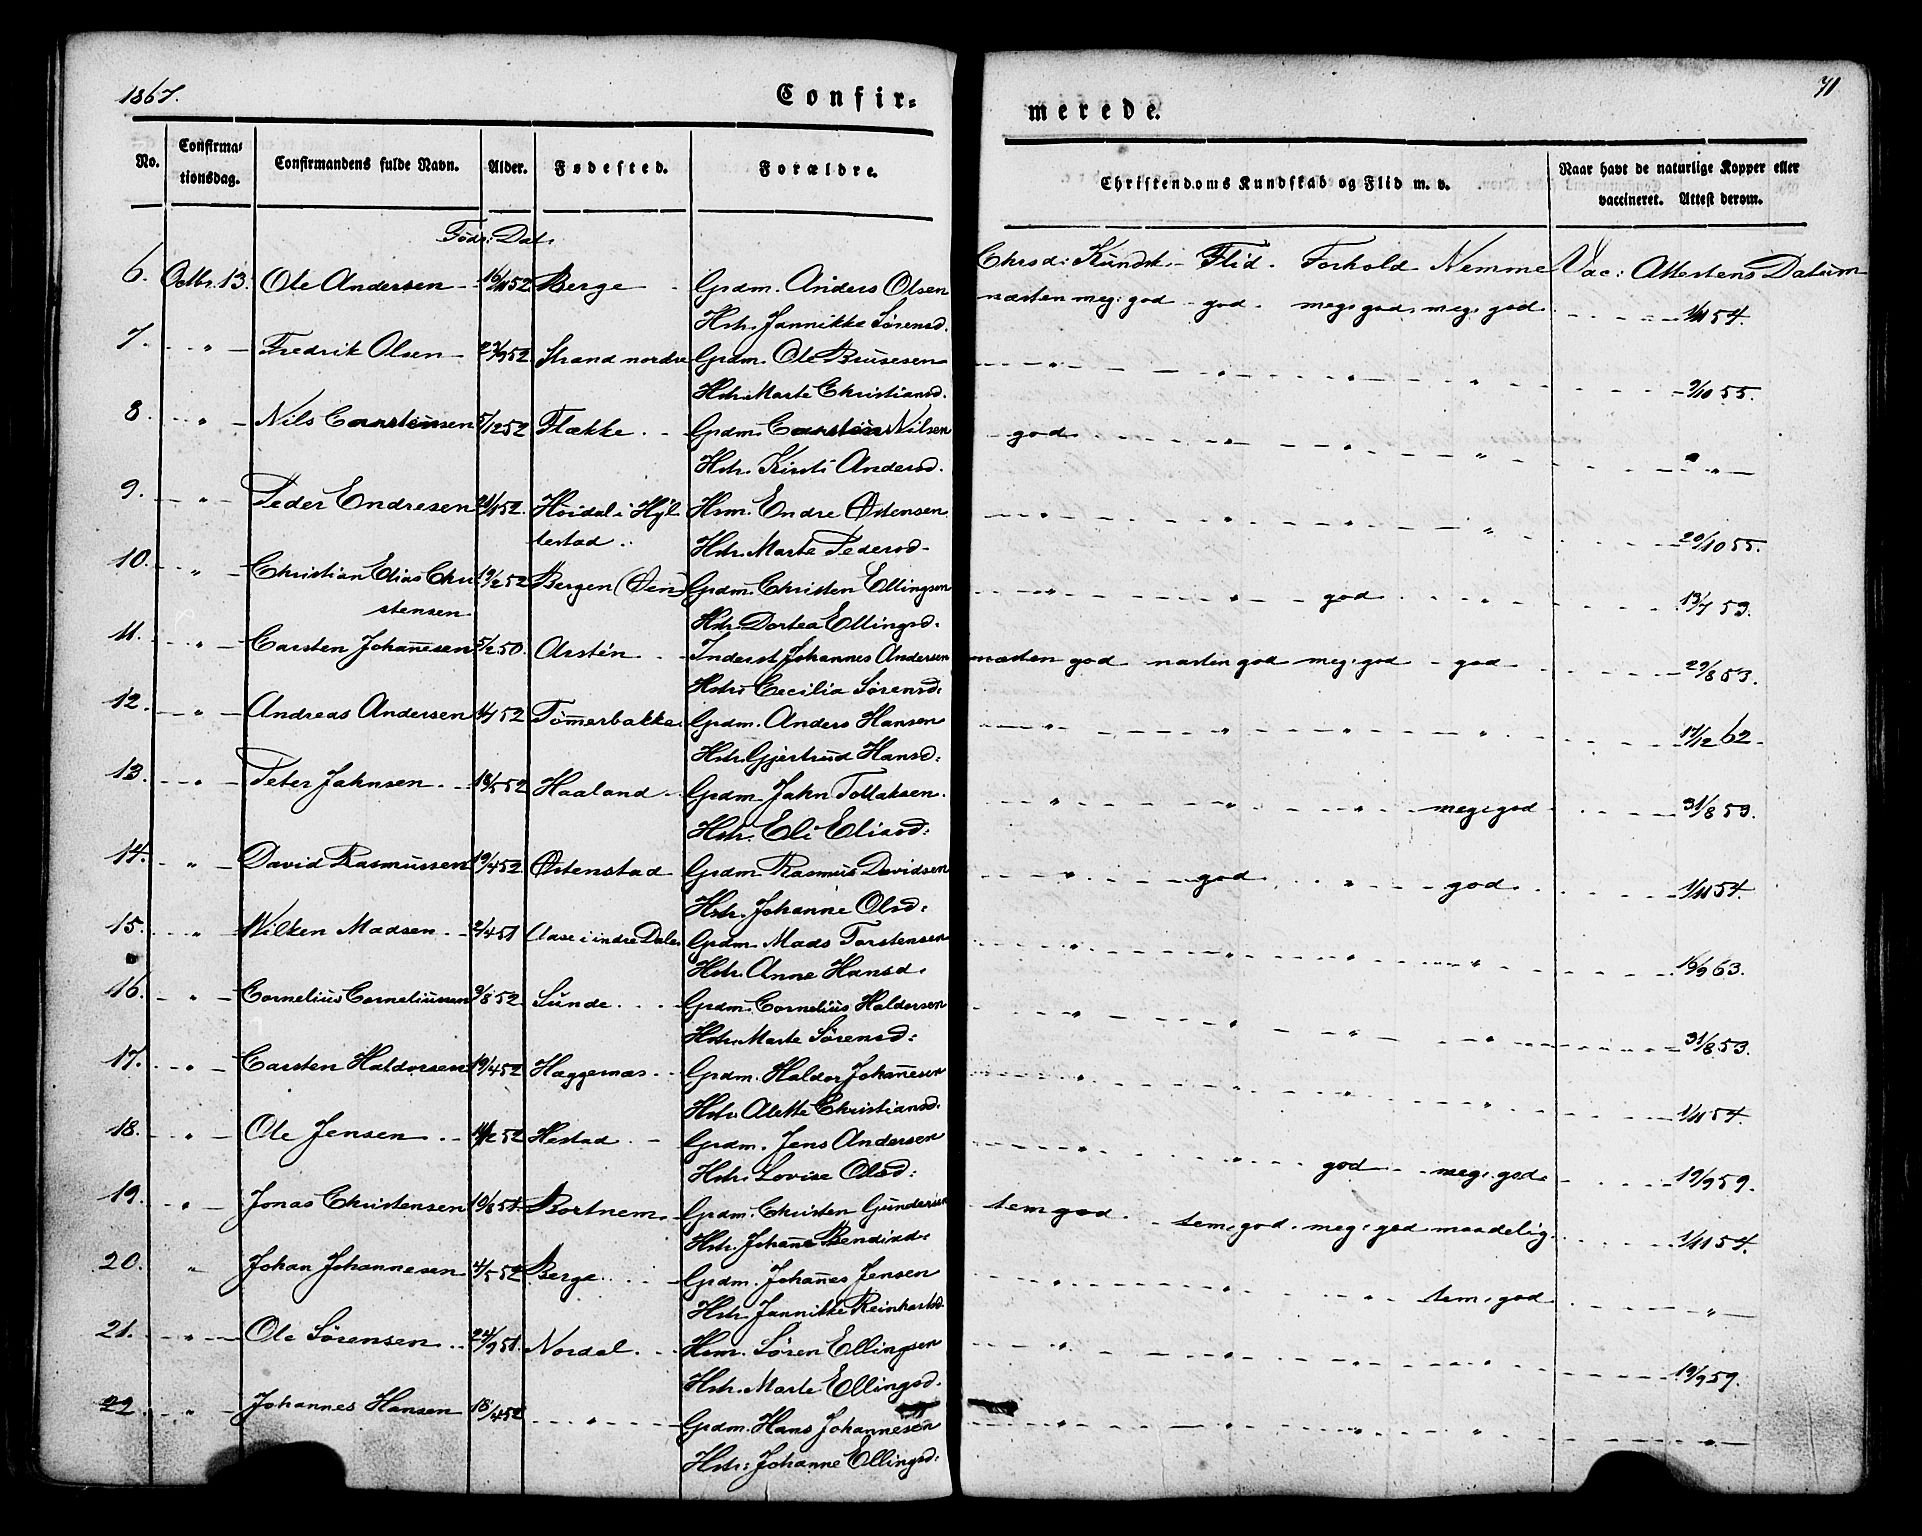 1867.
71
Confir-
merede.
No.
Confirma-
tionsdag.
Confirmandens fulde Navn.
Alder.
Fødested.
Forældre.
Christendoms Kundskab og Flid m. v.
Naar havt de naturlige Kopper eller
vaccineret. Attest derom.
Föds: Dat.
Chrsd: Kundsk. - Flid. Forhold Nemme Vac: Attestens Datum
6. Octbr. 13. Ole Andersen - 16/11 52 Berge - Grdm. Anders Olsen næsten meg: god - god. meg: god. meg: god. 1/11 54.
Hstr. Jannikke Sørensd.
7. - " - Fredrik Olsen - 23/9 52 Strand nordre Grdm. Ole Brusesen - " - " - " - " - 9/10 55.
Hstr. Marte Christiansd.
8. - " - Nils Carstensen 5/12 52 Flække. - Grdm. Carsten Nilsen - god. - " - " - " - " -
Hstr. Kirsti Andersd.
9. - " - Peder Endresen 21/1 52. Høidal i Hyl- Hsm. Endre Østensen - " - " - " - " - 29/10 55.
lestad. Hstr. Marte Pedersd.
10. - " - Christian Elias Chri 19/2 52 Bergen (Øen) Grdm. Christen Ellingsen - " - " - god - " - 13/7 53.
stensen Hstr. Dortea Ellingsd.
11. - " - Carsten Johannesen 5/2 50. Arstén - Inderst Johannes Andersen næsten god næsten god meg: god - god - 29/8 53.
Hstr. Cecilia Sørensd:
12. - " - Andreas Andersen 1/7 52 Tømmerbakke Grdm. Anders Hansen - " - " - " - " - 17/12 62.
Hstr. Gjertrud Hansd:
13. - " - Peter Jahnsen. - 18/5 52 Haaland - Grdm. Jahn Tollaksen. " " " meg: god - 31/8 53.
Hstr. Eli Eliasd:
14. - " David Rasmussen 19/4 52 Østenstad Grdm. Rasmus Davidsen - " - god. " - god. - 1/11 54.
Hstr. Johanne Olsd:
15. - " Wilken Madsen. - 2/4 51 Aase i indre Dale. Grdm. Mads Torstensen - " - " - " - " - 16/9 63.
Hstr. Anne Hansd.
16. - " - Cornelius Corneliussen 9/8 52 Sunde. - Grdm. Cornelius Haldorsen - " - " - " - " - 31/8 53.
Hstr. Marte Sørensd:
17. " - Carsten Haldorsen 19/4 52 Hæggernæs. - Grdm. Haldor Johannesen " - " - 1/11 54.
Hstr. Alette Christiansd.
18. - " - Ole Jensen. - 11/2 52 Hestad. - Grdm. Jens Andersen " god - meg: god. - 19/9 59.
Hstr. Lovise Olsd:
19. " - Jonas Christensen 19/8 51. Bortnem. - Grdm. Christen Gundersen tem: god. - tem: god. meg: god maadelig. - 1/11 54.
Hstr. Johanne Bendixd:
20. " Johan Johannesen 4/5 52 Berge. - Grdm. Johannes Jensen " " " tem: god - " -
Hstr. Jannikke Reinhartsd.
21. - " - Ole Sørensen. - 24/9 51. Nordal. - Hsm. Søren Ellingsen - " - " - " - " - 19/9 59.
Hstr. Marte Ellingsd.
22 - " - Johannes Hansen 18/4 52 - " - Grdm. Hans Johannesen - " - " - " - " - " -
Hstr: Johanne Ellingsd: